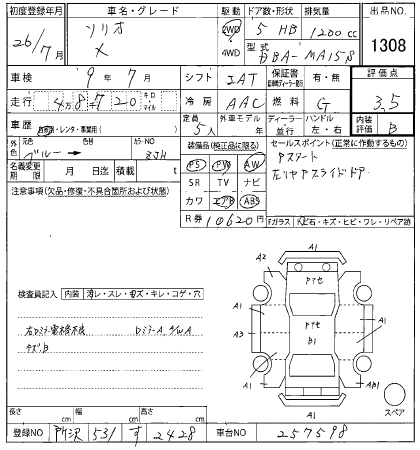 初度登録年月 車名・グレード 駆動 ドア数・形状 排気量 出品NO.
26/7月 ソリオ X 2WD 4WD 5 HB 1200 cc 1308
型式 DBA-MA15S
車検 9年7月 シフト IAT 保証書 有・無 評価点
走行 48720 キロ マイル 冷房 AAC 燃料 G 3.5
車歴 自家・レンタ・事業用( ) 定員 5人 外車モデル 年 ディーラー 並行 ハンドル 左・右 内装評価 B
外色 元色 ブルー 色替 カラーNO ZJH 装備品(純正品に限る) セールスポイント(正常に作動するもの)
名義変更期限 月 日迄 積載 t PS PW AW Pスタート
注意事項(欠品・修復・不具合箇所および状態) SR TV ナビ 左リヤPスライドドア
カワ エアB ABS
R券 10620円 Fガラス 飛石・キズ・ヒビ・ワレ・リペア跡
A1
A2
検査員記入 内装 汚レ・スレ・キズ・キレ・コゲ・穴 A1 A1
A3 A1
右Dミラー電格不良 DミラーA、S/WA
キズB B1
A1 AB1
A1 スペア
長さ cm 幅 cm 高さ cm
登録NO 所沢 531 す 2428 車台NO 257598